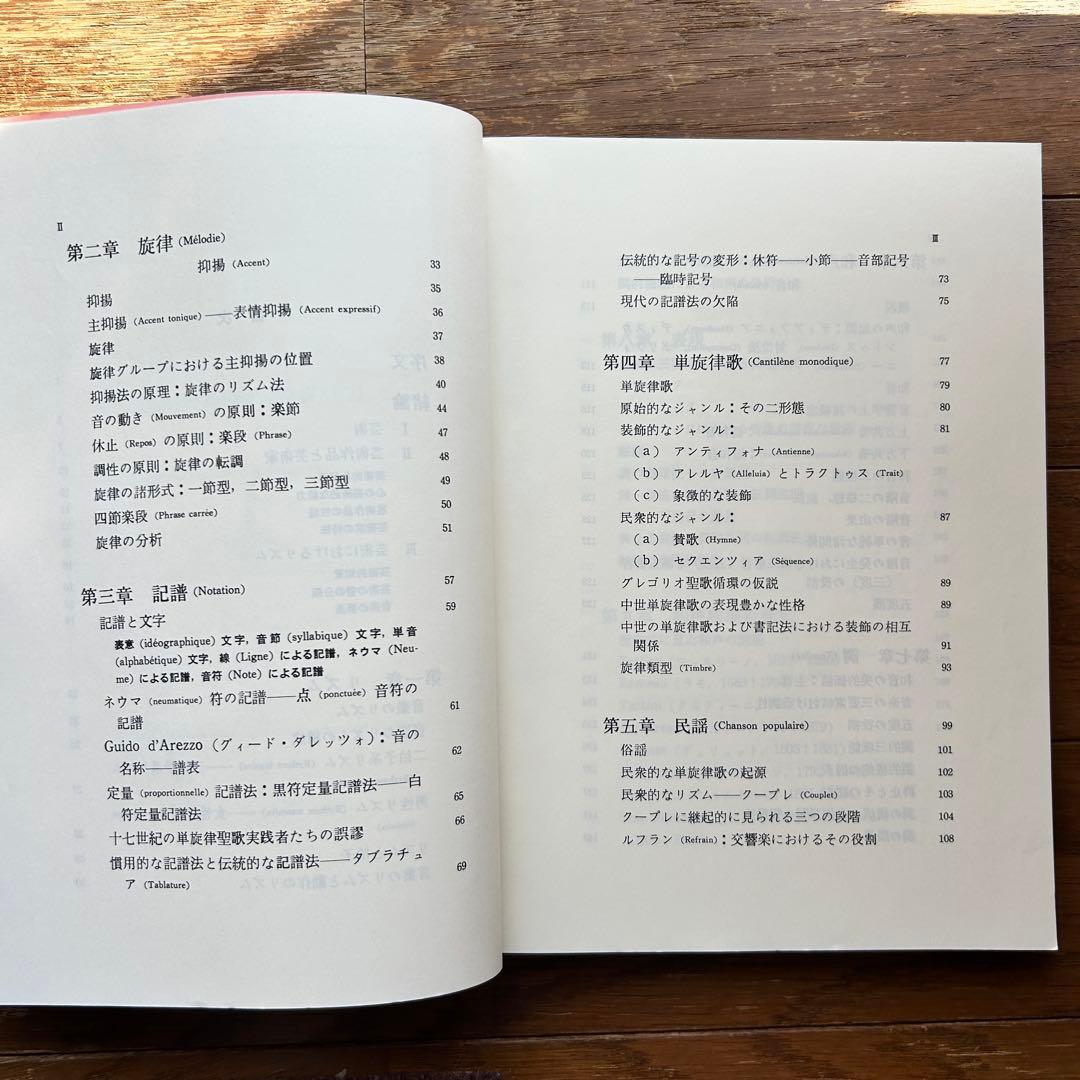 II
第二章　旋律 (Mélodie)
抑揚 (Accent) 33
抑揚 35
主抑揚 (Accent tonique)――表情抑揚 (Accent expressif) 36
旋律 37
旋律グループにおける主抑揚の位置 38
抑揚法の原理：旋律のリズム法 40
音の動き (Mouvement) の原則：楽節 44
休止 (Repos) の原則：楽段 (Phrase) 47
調性の原則：旋律の転調 48
旋律の諸形式：一節型，二節型，三節型 49
四節楽段 (Phrase carrée) 50
旋律の分析 51
第三章　記譜 (Notation) 57
記譜と文字 59
表意 (idéographique) 文字，音節 (syllabique) 文字，単音
(alphabétique) 文字，線 (Ligne) による記譜，ネウマ (Neu-
me) による記譜，音符 (Note) による記譜
ネウマ (neumatique) 符の記譜――点 (ponctuée) 音符の
記譜 61
Guido d'Arezzo（グィード・ダレッツォ）：音の
名称――譜表 62
定量 (proportionnelle) 記譜法：黒符定量記譜法――白
符定量記譜法 65
十七世紀の単旋律聖歌実践者たちの誤謬 66
慣用的な記譜法と伝統的な記譜法――タブラチュ
ア (Tablature) 69
III
伝統的な記号の変形：休符――小節――音部記号
――臨時記号 73
現代の記譜法の欠陥 75
第四章　単旋律歌 (Cantilène monodique) 77
単旋律歌 79
原始的なジャンル：その二形態 80
装飾的なジャンル： 81
（a） アンティフォナ (Antienne)
（b） アレルヤ (Alleluia) とトラクトゥス (Trait)
（c） 象徴的な装飾
民衆的なジャンル： 87
（a） 賛歌 (Hymne)
（b） セクエンツィア (Séquence)
グレゴリオ聖歌循環の仮説 89
中世単旋律歌の表現豊かな性格 89
中世の単旋律歌および書記法における装飾の相互
関係 91
旋律類型 (Timbre) 93
第五章　民謡 (Chanson populaire) 99
俗謡 101
民衆的な単旋律歌の起源 102
民衆的なリズム――クープレ (Couplet) 103
クープレに継起的に見られる三つの段階 104
ルフラン (Refrain)：交響楽におけるその役割 108